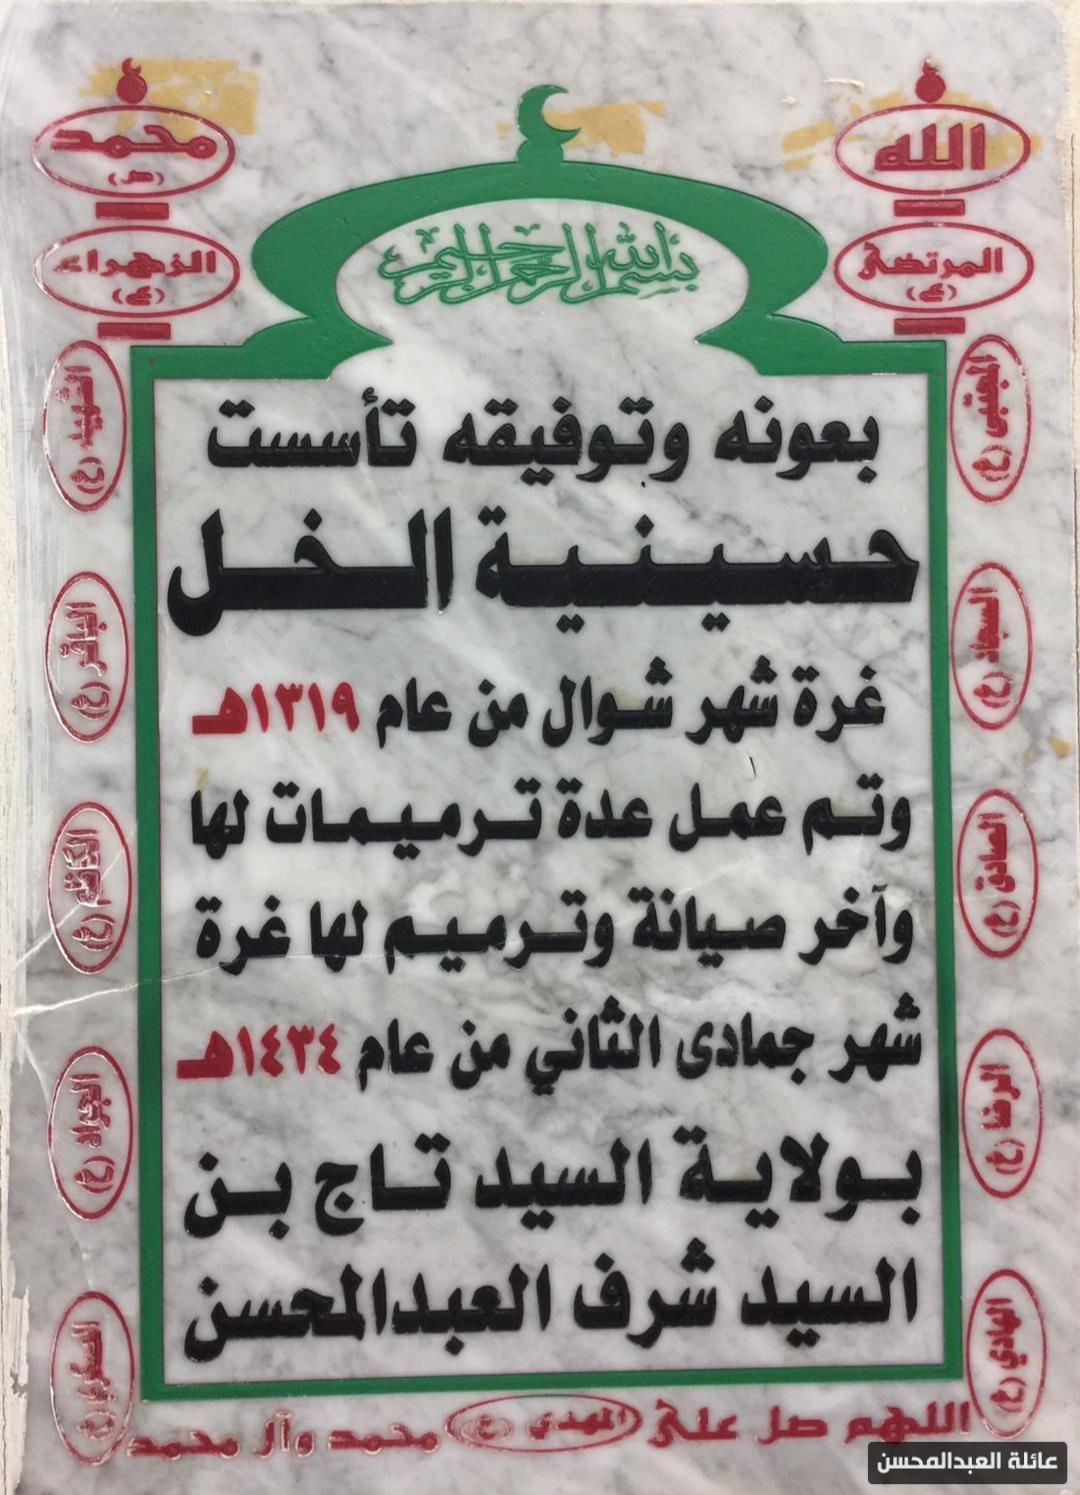 الله
محمد (ص)
المرتضى (ع)
الزهراء (ع)
بسم الله الرحمن الرحيم
المجتبى (ع)
الشهيد (ع)
بعونه وتوفيقه تأسست
حسينية الخل
السجاد (ع)
الباقر (ع)
غرة شهر شوال من عام ١٣١٩هـ
وتم عمل عدة ترميمات لها
الصادق (ع)
الكاظم (ع)
وآخر صيانة وترميم لها غرة
شهر جمادى الثاني من عام ١٤٣٤هـ
الرضا (ع)
الجواد (ع)
بولاية السيد تاج بن
السيد شرف العبدالمحسن
الهادي (ع)
العسكري (ع)
اللهم صل على المهدي (ع) محمد وآل محمد
عائلة العبدالمحسن